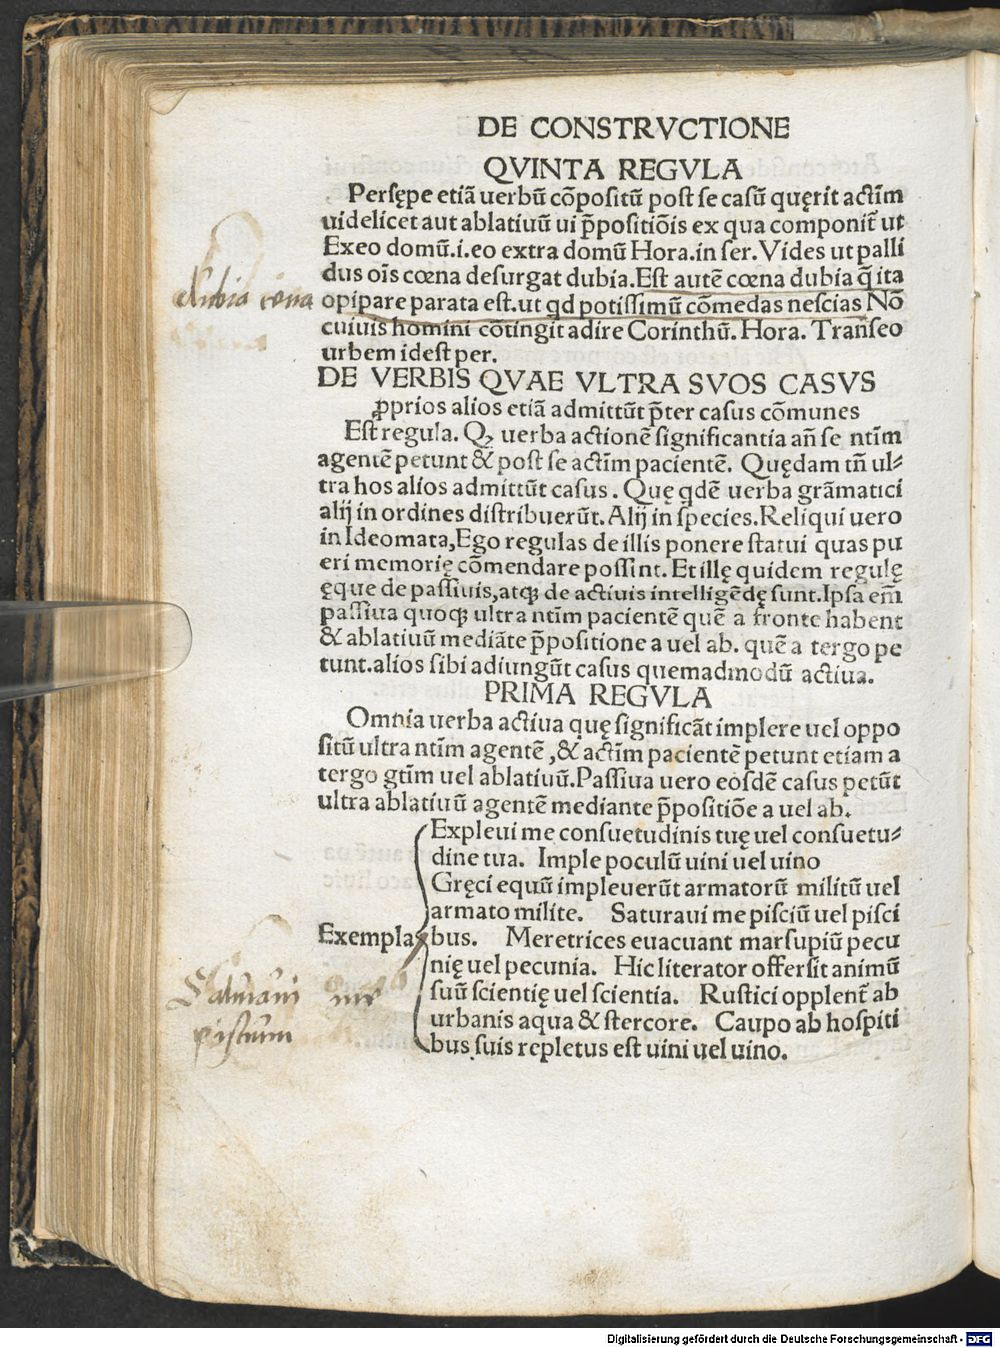 DE CONSTRVCTIONE
QVINTA REGVLA
Persępe etiā uerbū cōpositū post se casū quęrit actīm
uidelicet aut ablatiuū ui p̄positiōis ex qua componit̄ ut
Exeo domū.i.eo extra domū Hora.in ser.Vides ut palli
dus oīs cœna desurgat dubia.Est autē cœna dubia q̄ ita
opipare parata est.ut qd potissimū cōmedas nescias Nō
dubia cena
cuiuis homini cōtingit adire Corinthū. Hora. Transeo
urbem idest per.
DE VERBIS QVAE VLTRA SVOS CASVS
ꝓprios alios etiā admittūt p̄ter casus cōmunes
Est regula. Qꝫ uerba actionē significantia an̄ se ntīm
agentē petunt & post se actīm pacientē. Quędam tn̄ ul⸗
tra hos alios admittūt casus. Quę qdē uerba grāmatici
alij in ordines distribuerūt. Alij in species. Reliqui uero
in Ideomata, Ego regulas de illis ponere statui quas pu
eri memorię cōmendare possint. Et illę quidem regulę
ęque de passiuis, atqꝫ de actiuis intelligēdę sunt. Ipsa em̄
passiua quoqꝫ ultra ntīm pacientē quē a fronte habent
& ablatiuū mediāte p̄positione a uel ab. quē a tergo pe
tunt. alios sibi adiungūt casus quemadmodū actiua.
PRIMA REGVLA
Omnia uerba actiua quę significāt implere uel oppo
sitū ultra ntīm agentē, & actīm pacientē petunt etiam a
tergo gtīm uel ablatiuū. Passiua uero eosdē casus petūt
ultra ablatiuū agentē mediante p̄positiōe a uel ab.
Expleui me consuetudinis tuę uel consuetu⸗
dine tua. Imple poculū uini uel uino
Gręci equū impleuerūt armatorū militū uel
armato milite. Saturaui me pisciū uel pisci
Exempla bus. Meretrices euacuant marsupiū pecu
nię uel pecunia. Hic literator offersit animū
suū scientię uel scientia. Rustici opplent̄ ab
Saturaui me
urbanis aqua & stercore. Caupo ab hospiti
piscium
bus suis repletus est uini uel uino.
Digitalisierung gefördert durch die Deutsche Forschungsgemeinschaft - DFG